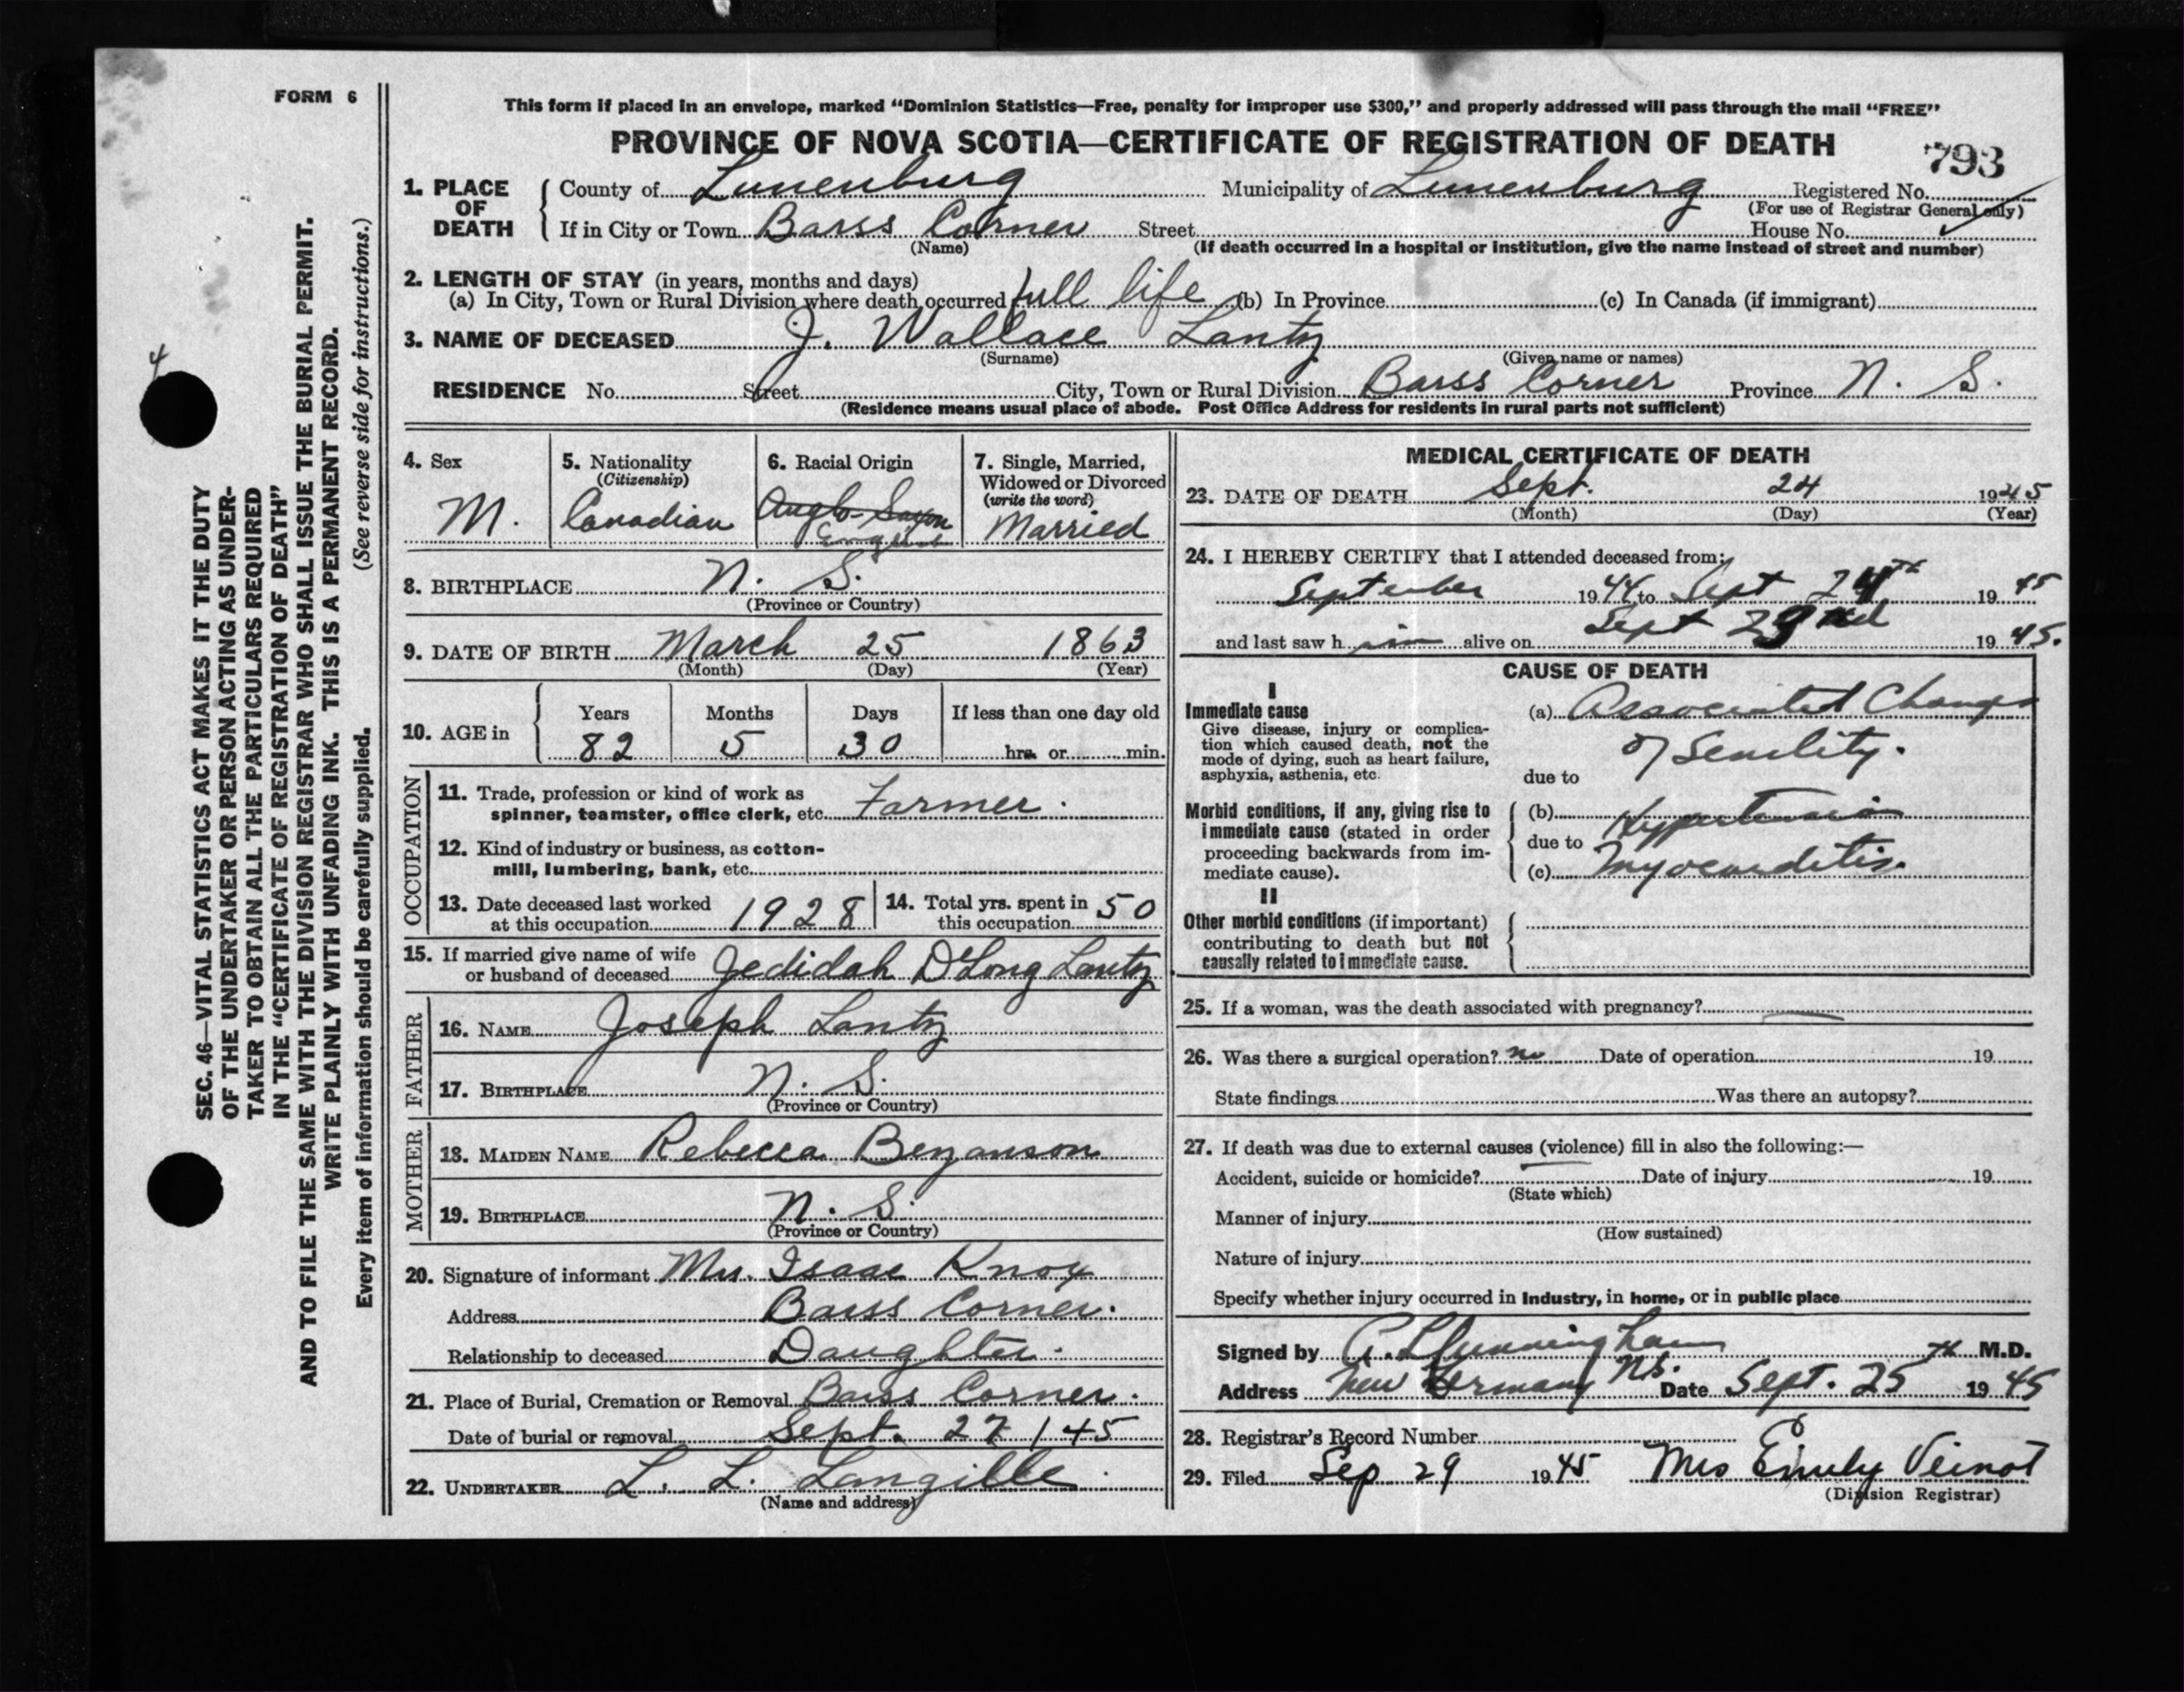 FORM 6
This form if placed in an envelope, marked "Dominion Statistics—Free, penalty for improper use $300," and properly addressed will pass through the mail "FREE"
PROVINCE OF NOVA SCOTIA—CERTIFICATE OF REGISTRATION OF DEATH
793
1. PLACE OF DEATH
County of Lunenburg Municipality of Lunenburg Registered No.
(For use of Registrar General only)
If in City or Town Barss Corner Street House No.
(Name) (If death occurred in a hospital or institution, give the name instead of street and number)
2. LENGTH OF STAY (in years, months and days)
(a) In City, Town or Rural Division where death occurred full life (b) In Province (c) In Canada (if immigrant)
3. NAME OF DECEASED J. Wallace Lantz
(Surname) (Given name or names)
RESIDENCE No. Street City, Town or Rural Division Barss Corner Province N. S.
(Residence means usual place of abode. Post Office Address for residents in rural parts not sufficient)
4. Sex
M.
5. Nationality
(Citizenship)
Canadian
6. Racial Origin
Anglo-Saxon
7. Single, Married,
Widowed or Divorced
(write the word)
Married
8. BIRTHPLACE N. S.
(Province or Country)
9. DATE OF BIRTH March 25 1863
(Month) (Day) (Year)
10. AGE in
Years Months Days If less than one day old
82 5 30 hrs. or min.
OCCUPATION
11. Trade, profession or kind of work as
spinner, teamster, office clerk, etc. Farmer.
12. Kind of industry or business, as cotton-
mill, lumbering, bank, etc.
13. Date deceased last worked
at this occupation 1928
14. Total yrs. spent in
this occupation 50
15. If married give name of wife
or husband of deceased Jedidah DeLong Lantz
FATHER
16. NAME Joseph Lantz
17. BIRTHPLACE N. S.
(Province or Country)
MOTHER
18. MAIDEN NAME Rebecca Bezanson
19. BIRTHPLACE N. S.
(Province or Country)
20. Signature of informant Mrs. Isaac Knox
Address Barss Corner.
Relationship to deceased Daughter.
21. Place of Burial, Cremation or Removal Barss Corner.
Date of burial or removal Sept. 27 / 45
22. UNDERTAKER L. L. Langille
(Name and address)
MEDICAL CERTIFICATE OF DEATH
23. DATE OF DEATH Sept. 24 1945
(Month) (Day) (Year)
24. I HEREBY CERTIFY that I attended deceased from:
September 1944 to Sept 24th 1945
and last saw him alive on Sept 1945.
CAUSE OF DEATH
I
Immediate cause
Give disease, injury or complica-
tion which caused death, not the
mode of dying, such as heart failure,
asphyxia, asthenia, etc.
(a) Associated Changes
of Senility.
due to
Morbid conditions, if any, giving rise to
immediate cause (stated in order
proceeding backwards from im-
mediate cause).
(b) Hypertension
due to
(c) Myocarditis.
II
Other morbid conditions (if important)
contributing to death but not
causally related to immediate cause.
25. If a woman, was the death associated with pregnancy?
26. Was there a surgical operation? no Date of operation 19
State findings Was there an autopsy?
27. If death was due to external causes (violence) fill in also the following:—
Accident, suicide or homicide? Date of injury 19
(State which)
Manner of injury
(How sustained)
Nature of injury
Specify whether injury occurred in Industry, in home, or in public place
Signed by Cunningham M.D.
Address New Germany N.S. Date Sept. 25 1945
28. Registrar's Record Number
29. Filed Sep 29 1945 Mrs Emily Veinot
(Division Registrar)
SEC. 46—VITAL STATISTICS ACT MAKES IT THE DUTY
OF THE UNDERTAKER OR PERSON ACTING AS UNDER-
TAKER TO OBTAIN ALL THE PARTICULARS REQUIRED
IN THE "CERTIFICATE OF REGISTRATION OF DEATH"
AND TO FILE THE SAME WITH THE DIVISION REGISTRAR WHO SHALL ISSUE THE BURIAL PERMIT.
WRITE PLAINLY WITH UNFADING INK. THIS IS A PERMANENT RECORD.
Every item of information should be carefully supplied. (See reverse side for instructions.)
4